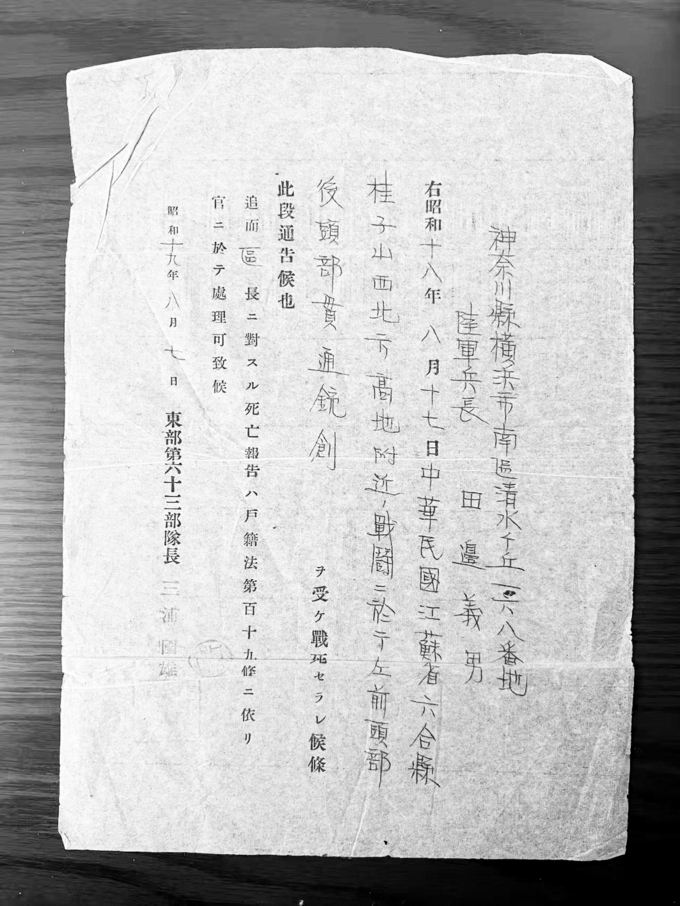 神奈川縣橫浜市南區清水ケ丘一六八番地
陸軍兵長 田邉義男
右昭和十八年八月十七日中華民國江蘇省六合縣
桂子山西北方高地附近ノ戰鬪ニ於テ左前頭部
後頭部貫通銃創ヲ受ケ戰死セラレ候條
此段通告候也
追而區長ニ對スル死亡報告ハ戶籍法第百十九條ニ依リ
官ニ於テ處理可致候
昭和十九年八月七日 東部第六十三部隊長 三浦國雄